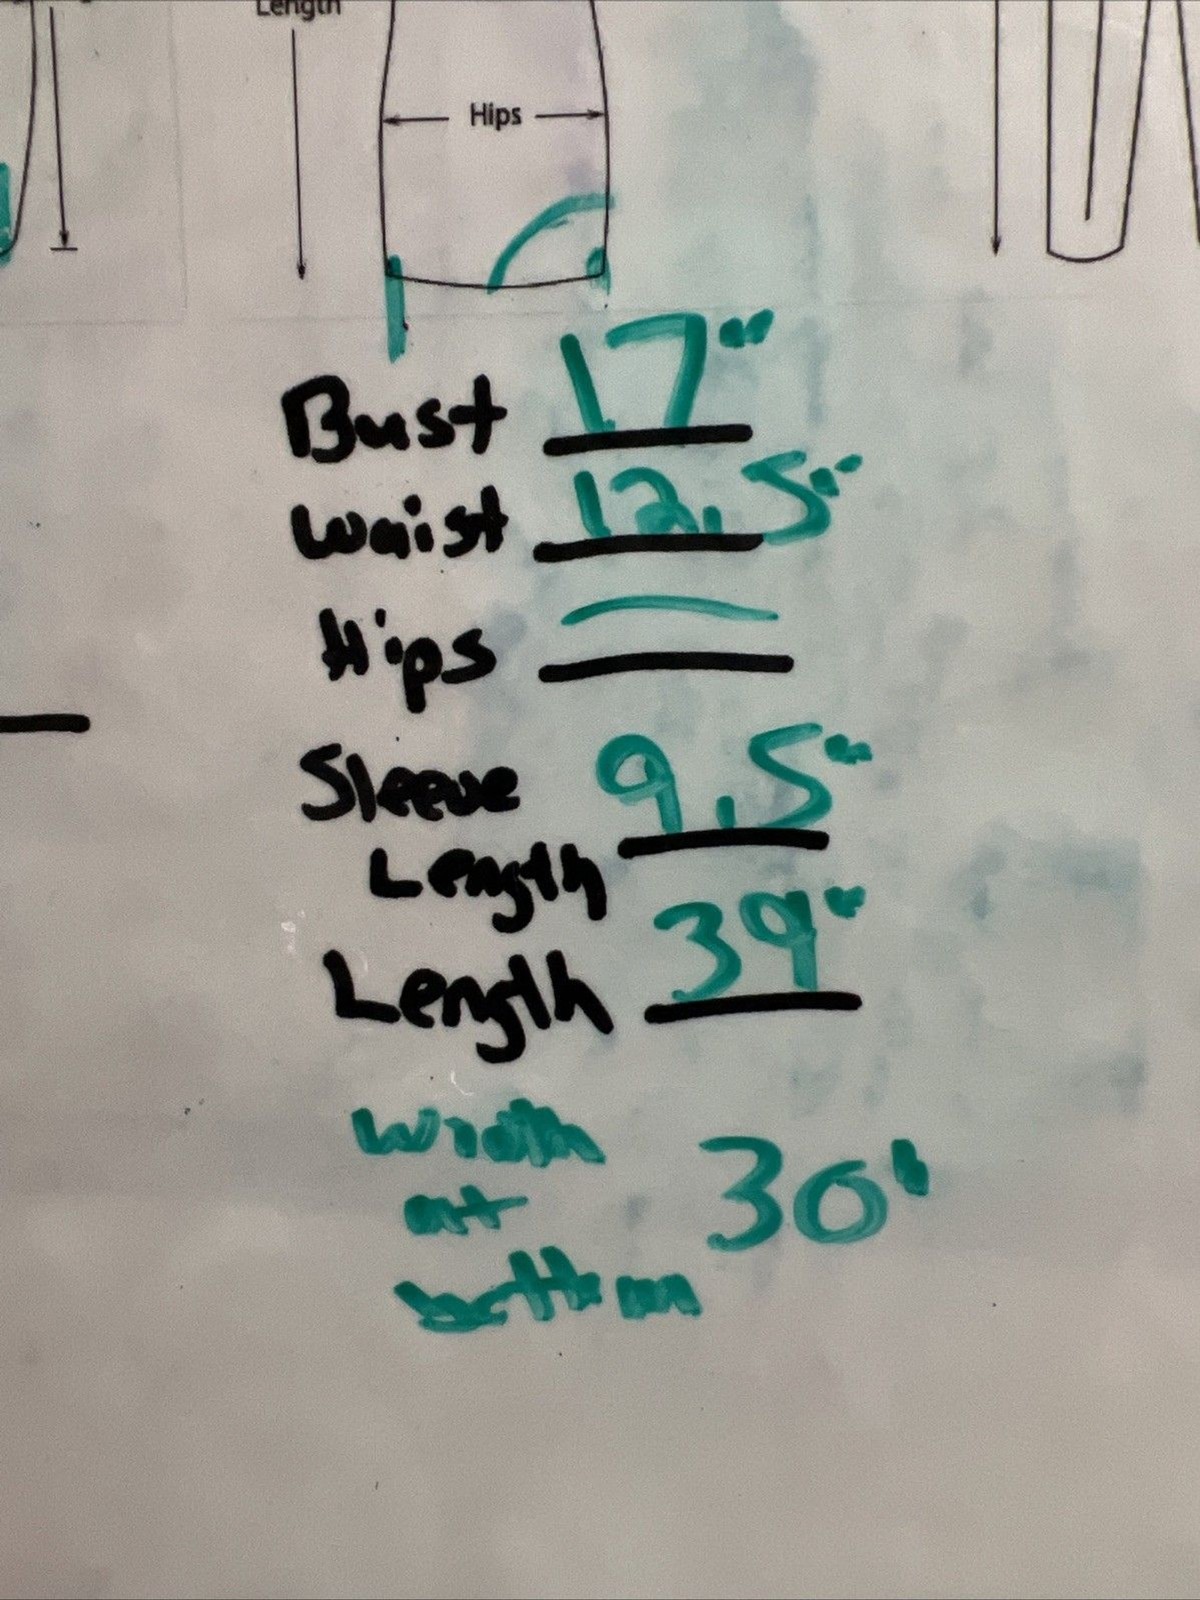 Length
Hips
Bust 17"
Waist 12.5"
Hips —
Sleeve 9.5"
Length
Length 39"
Width
at 30"
bottom